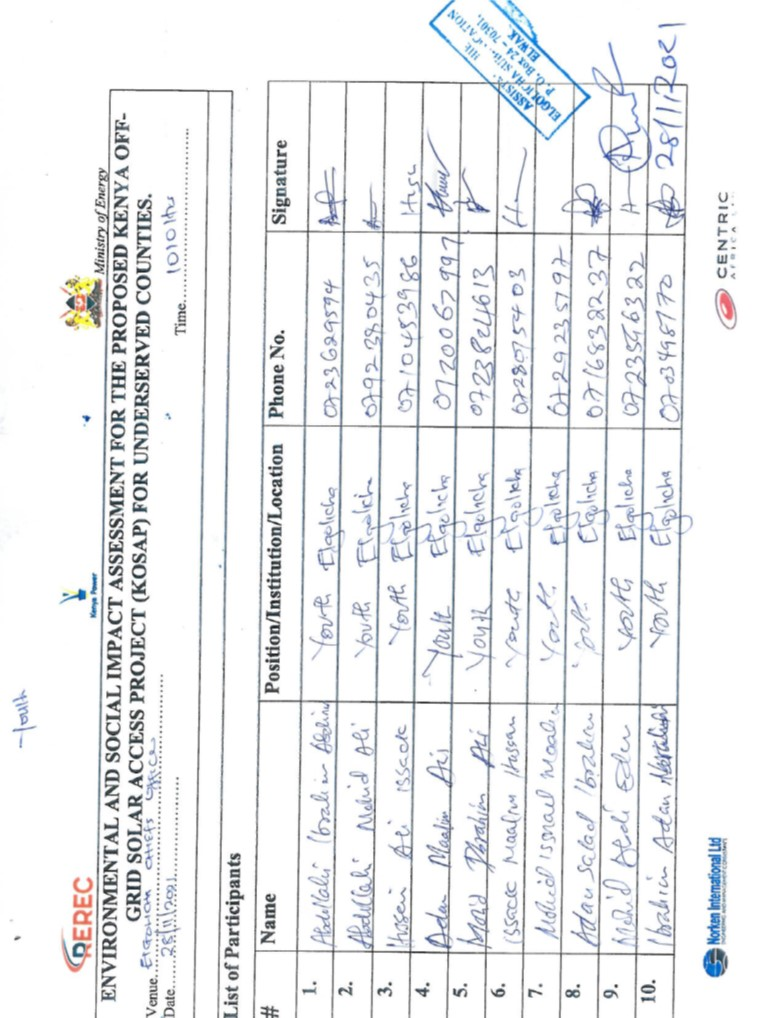 -Youth
REREC
Kenya Power
Ministry of Energy
ENVIRONMENTAL AND SOCIAL IMPACT ASSESSMENT FOR THE PROPOSED KENYA OFF-
GRID SOLAR ACCESS PROJECT (KOSAP) FOR UNDERSERVED COUNTIES.
Venue Elgolicha chiefs office
Date 28/11/2021 Time 1010Hrs
List of Participants
# Name Position/Institution/Location Phone No. Signature
1. Abdullahi Ibrahim Youth Elgolicha 0723629594
2. Abdullahi Mohid Ali Youth Elgolicha 0792390435
3. Hussein Ali Issack Youth Elgolicha 0710453986
4. Adan Maalim Ali Youth Elgolicha 0720067997
5. Ibrahim Ali Youth Elgolicha 0723824613
6. Issack Maalim Hassan Youth Elgolicha 0728075403
7. Mohid Ismael Maalim Youth Elgolicha 0729235197
8. Adan Salad Ibrahim Youth Elgolicha 0716832237
9. Mohid Abdi Eden Youth Elgolicha 0723596322
10. Ibrahim Adan Youth Elgolicha 0703498770
28/11/2021
ELGOLICHA
P.O. Box 24 - 70301,
ELWAK
Norken International Ltd
CENTRIC
AFRICA LTD